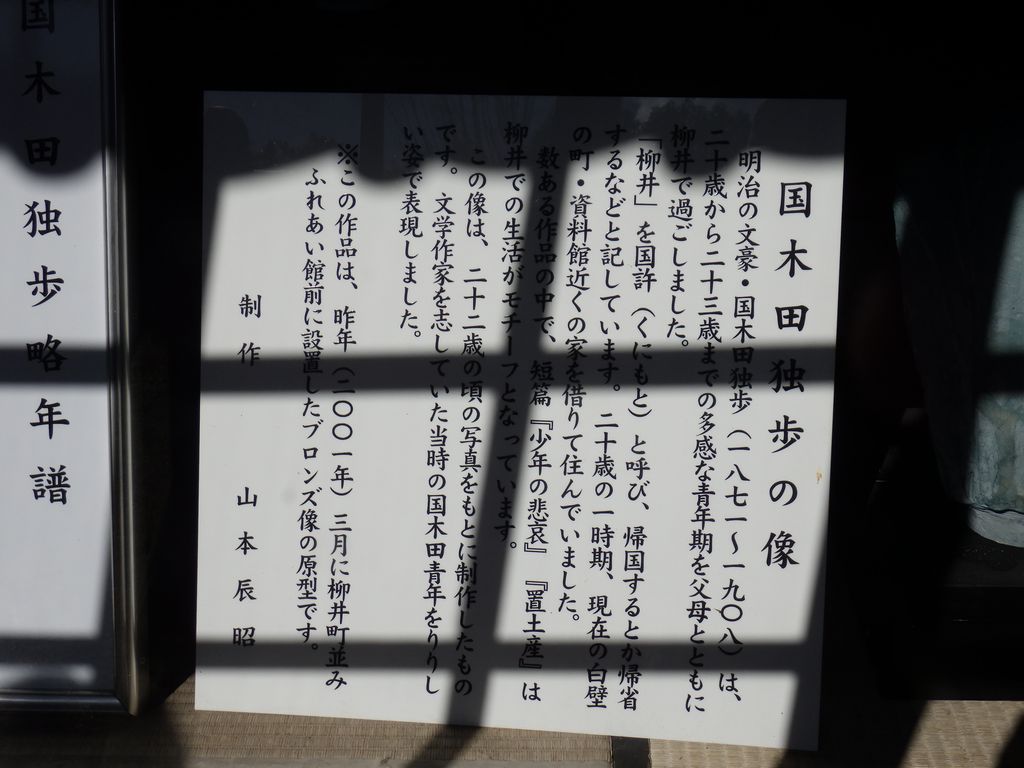 国木田独歩の像
明治の文豪・国木田独歩（一八七一～一九〇八）は、
二十歳から二十三歳までの多感な青年期を父母とともに
柳井で過ごしました。
「柳井」を国許（くにもと）と呼び、帰国するとか帰省
するなどと記しています。二十歳の一時期、現在の白壁
の町・資料館近くの家を借りて住んでいました。
数ある作品の中で、短篇『少年の悲哀』『置土産』は
柳井での生活がモチーフとなっています。
この像は、二十二歳の頃の写真をもとに制作したもの
です。文学作家を志していた当時の国木田青年をりりし
い姿で表現しました。
※この作品は、昨年（二〇〇一年）三月に柳井町並み
ふれあい館前に設置したブロンズ像の原型です。
制作 山本辰昭
国木田独歩略年譜